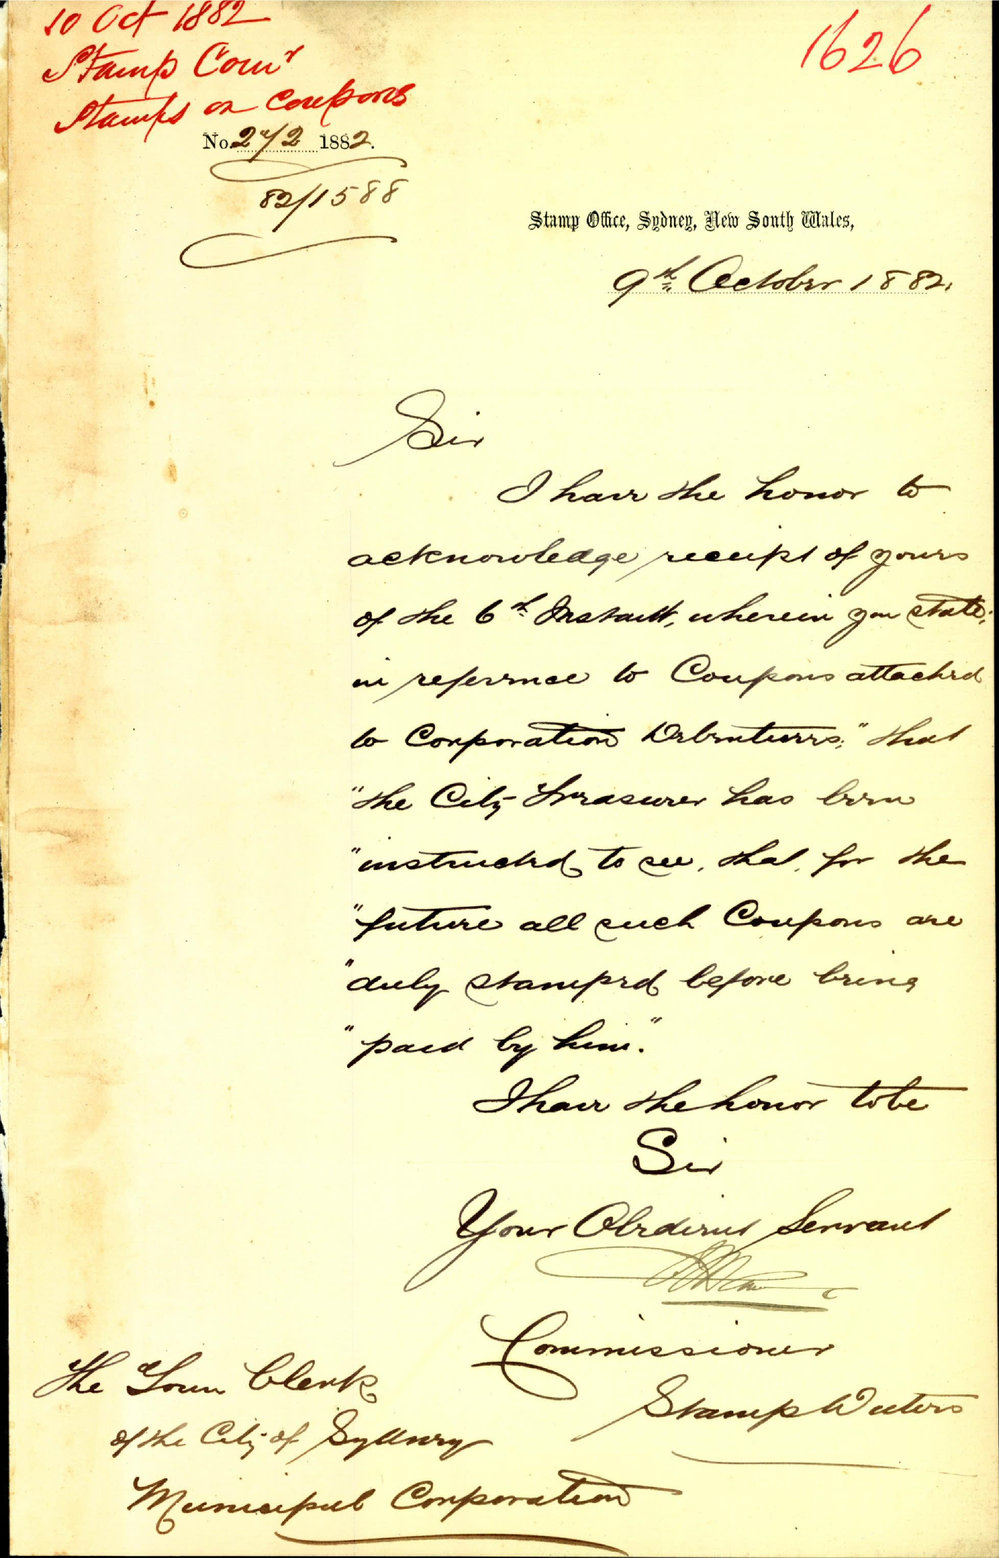 10 Oct 1882
1626
Stamp Comr
Stamps on Coupons
No. 272 1882.
82/1588
Stamp Office, Sydney, New South Wales,
9th October 1882.
Sir
I have the honor to
acknowledge receipt of yours
of the 6th Instant, wherein you state,
in reference to Coupons attached
to Corporation Debentures, "that
"the City Treasurer has been
"instructed, to see, that, for the
"future all such Coupons are
"duly stamped before being
"paid by him."
I have the honor to be
Sir
Your Obedient Servant
Commissioner
Stamp Duties
The Town Clerk
of the City of Sydney
Municipal Corporation